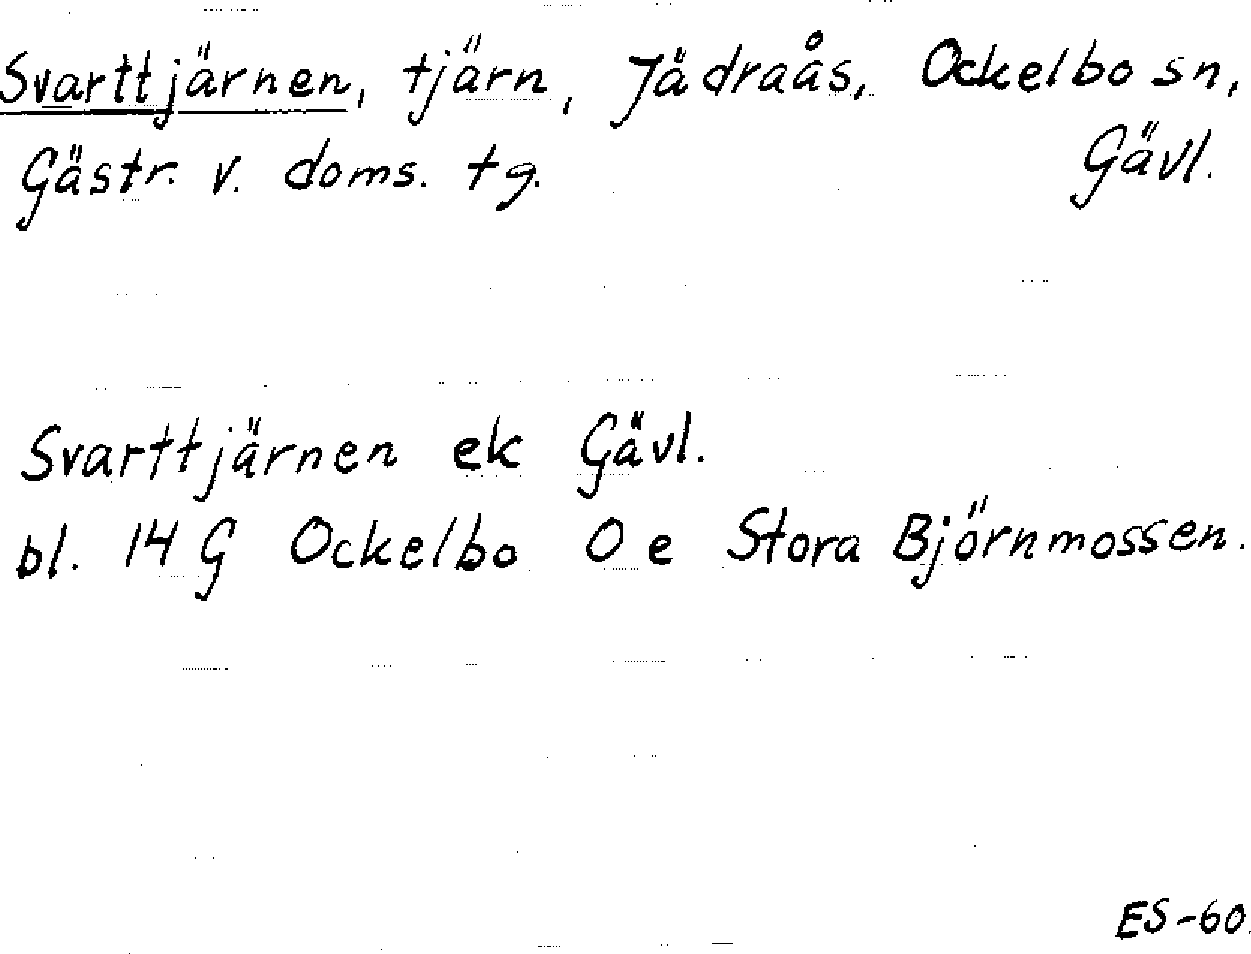 Svarttjärnen, tjärn, Jädraås, Ockelbo sn,
Gästr. v. doms. tg. Gävl.
Svarttjärnen ek Gävl.
bl. 14 G Ockelbo O e Stora Björnmossen.
ES-60.